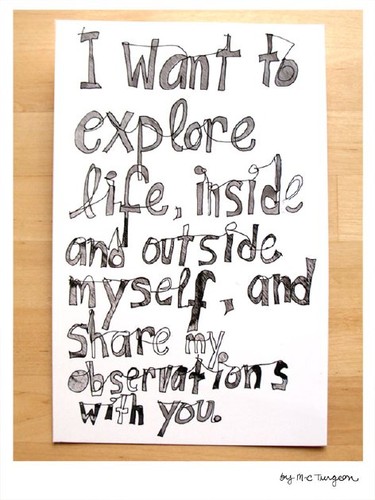 I want to
explore
life, inside
and outside
myself, and
share my
observations
with you.
by M-C Turgeon